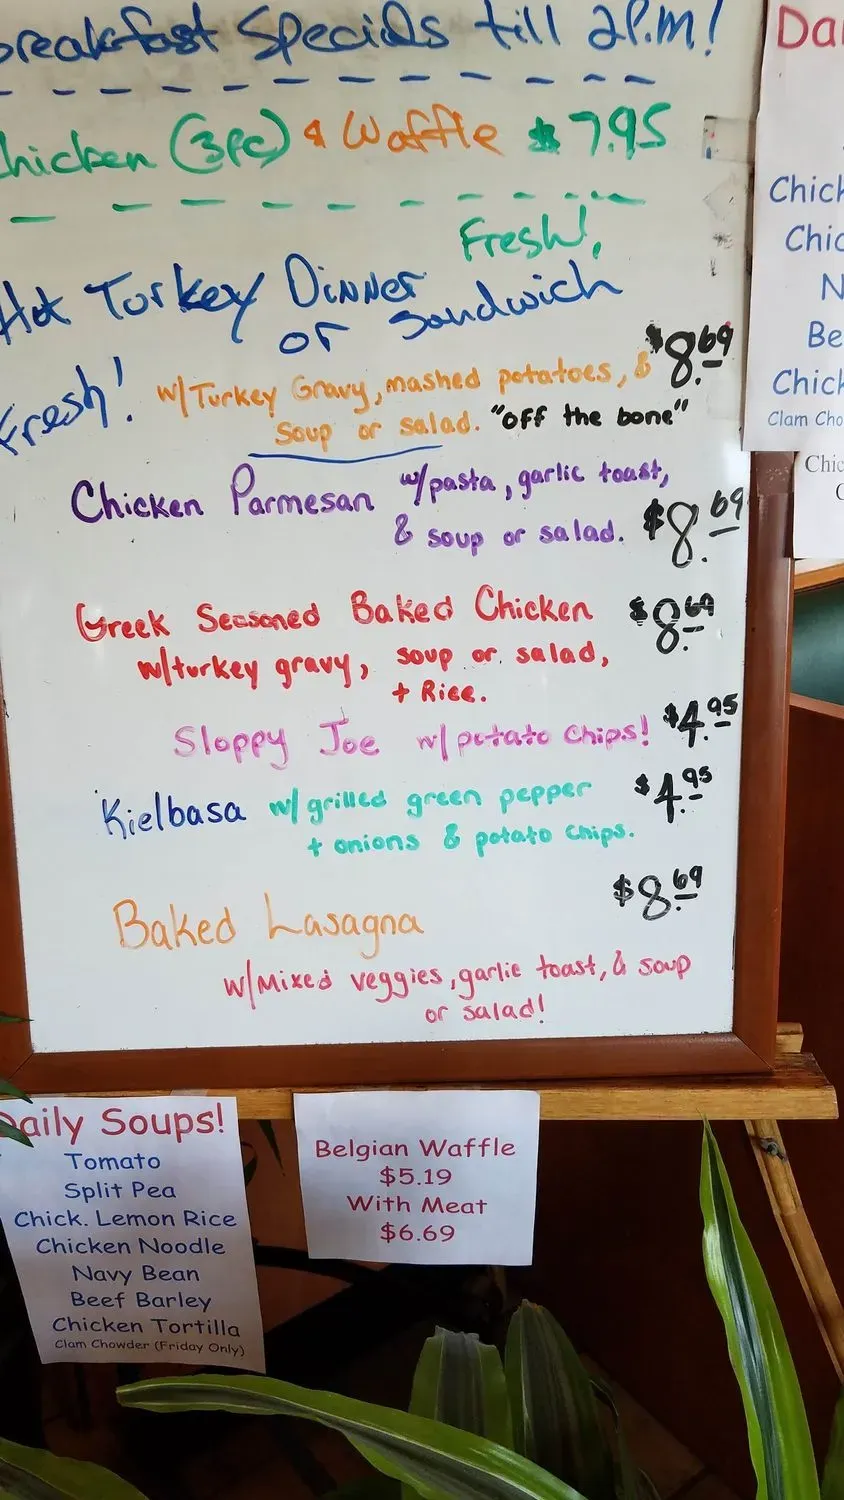 breakfast Specials till 2P.M!
Chicken (3pc) & Waffle $7.95
Fresh!,
Hot Turkey Dinner
or Sandwich
Fresh! w/Turkey Gravy, mashed potatoes, & $8.69
Soup or salad. "off the bone"
Chicken Parmesan w/pasta, garlic toast,
& soup or salad. $8.69
Greek Seasoned Baked Chicken $8.69
w/turkey gravy, soup or salad,
+ Rice.
Sloppy Joe w/potato chips! $4.95
Kielbasa w/grilled green pepper $4.95
+ onions & potato chips.
Baked Lasagna $8.69
w/Mixed veggies, garlic toast, & soup
or salad!
Daily Soups!
Tomato
Split Pea
Chick. Lemon Rice
Chicken Noodle
Navy Bean
Beef Barley
Chicken Tortilla
Clam Chowder (Friday Only)
Belgian Waffle
$5.19
With Meat
$6.69
Dai
Chick
Chic
N
Be
Chick
Clam Cho
Chic